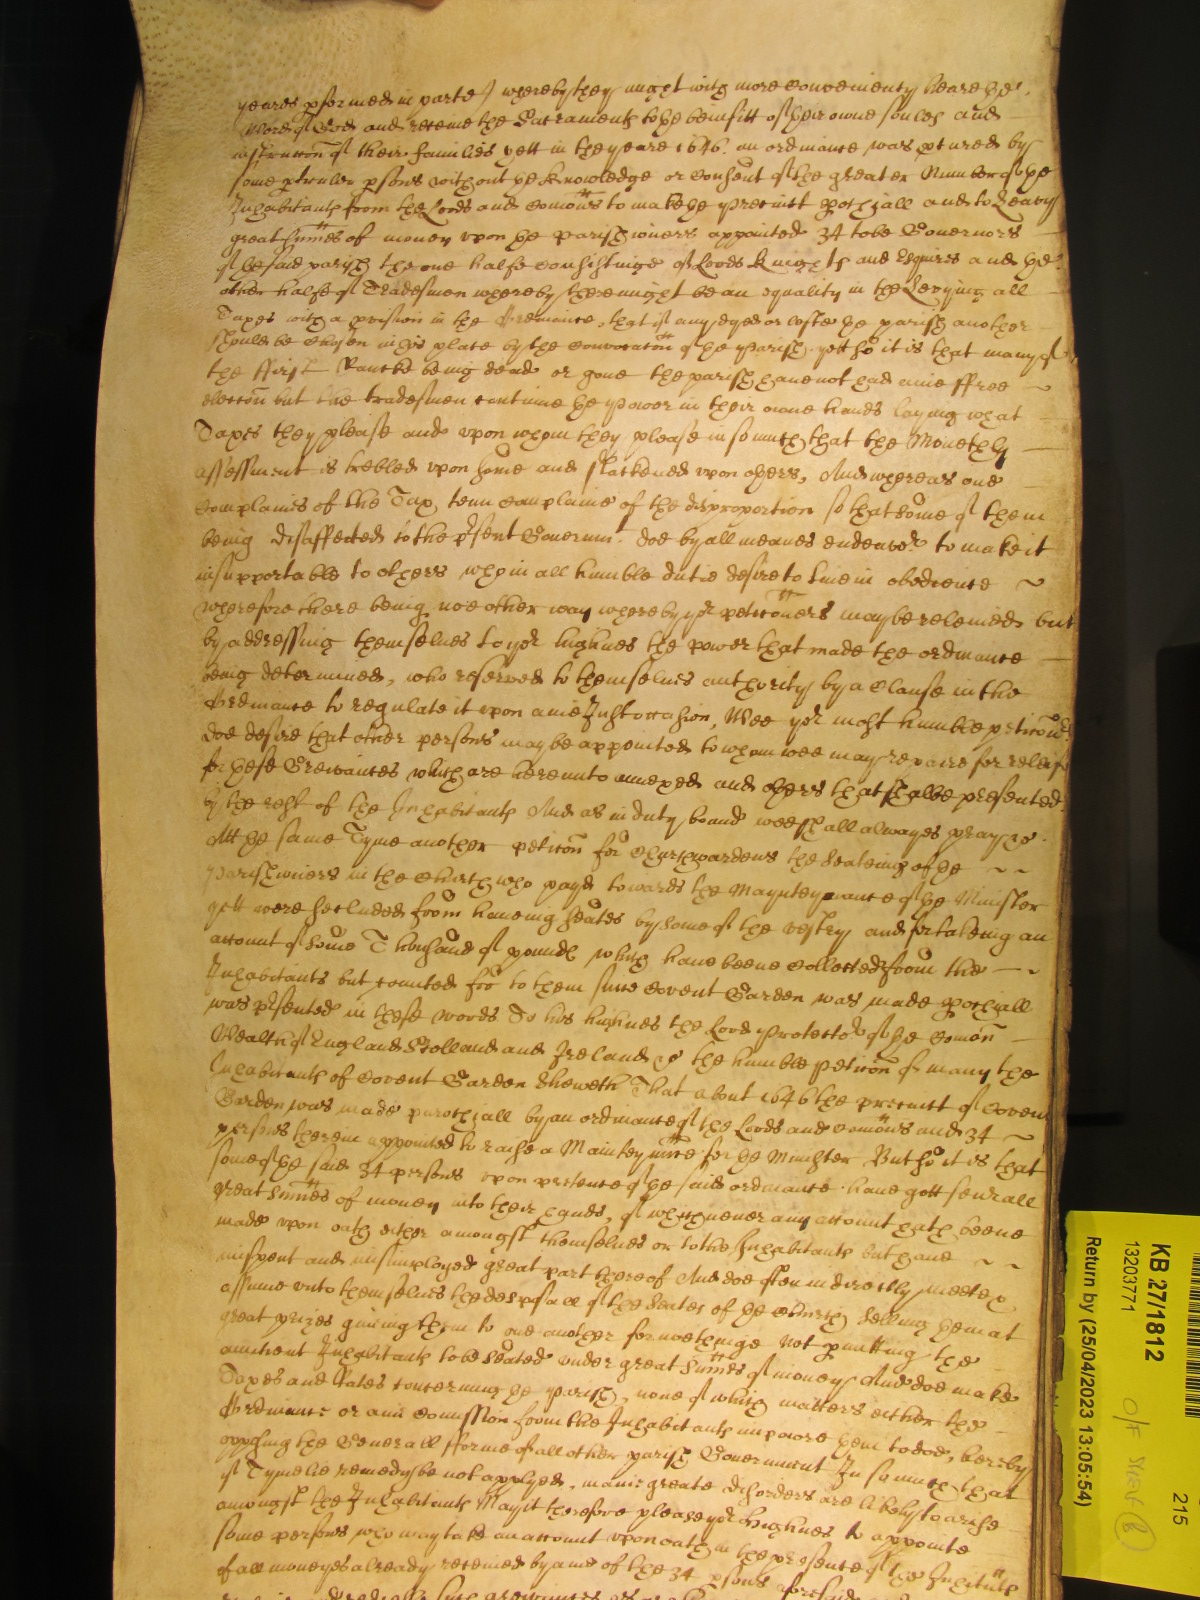 yeares pformed in parte) whereby they might with more Conveniency heare ye
Word of God and receive the Sacraments to ye beinfitt of their owne soules and
instruccon of their families yett in the yeare 1646. an ordinance was pcured by
some pticuler psons without ye knowledge or Consent of the greater Number of ye
Inhabitants from the Lords and Comons to make ye precinct pochiall and to Leavy
great sumes of money upon ye parishioners appointed 34 to be Governors
of ye said parish the one halfe Consistinge of Lords Knights and Esquires and ye
other halfe of Tradesmen whereby there might be an equality in the Levying all
Taxes with a pvision in the Ordinance, that if any dyed or lefte ye parish another
should be Chosen in his place by the Convocacon of ye parish yett so it is that many of
the first Rancke being dead or gone the parish have not had anie ffree
eleccon but the tradesmen continue ye power in their owne hands laying what
Taxes they please and upon whom they please in so much that the Monethly
assessment is trebled upon some and slackened upon others, And whereas one
Complaines of the Tax, tenn Complaine of the disproportion so that some of them
being disaffected to the psent Governmt. doe by all meanes endeavor to make it
insupportable to others who in all humble dutie desire to live in obedience
Wherefore there being noe other way whereby yor peticoners may be releived but
by addressing themselves to yor highnes the power that made the ordinance
being determined, who reserved to themselves authority by a Clause in the
Ordinance to regulate it upon anie Just occasion, Wee yor most humble peticonrs
doe desire that other persons may be appointed to whom wee may repaire for releife
for these Grevances which are hereunto annexed and others that shalbe presented
by the rest of the Inhabitants And as in duty bound wee shall alwayes pray &c.
Att ye same Tyme another peticon for Churchwardens the seateing of ye
parishioners in the Church who payd towards the Maynteynance of ye Minister
yett were secluded from haveing seates by some of the vestry and for takeing an
account of some Thousand of pounds which have beene Collected from the
Inhabitants but counted for to them since Covent Garden was made pochiall
was psented in these words To his highnes the Lord Protector of ye Comon
Wealth of England Scotland and Ireland &c the humble peticon of many the
Inhabitants of Covent Garden Sheweth That about 1646 the precinct of Coven
Garden was made parochiall by an ordinance of the Lords and Comons and 34
persons therein appointed to raise a Maintenñce for ye Minister But so it is that
some of ye said 34 persons upon pretence of ye said ordinance have gott severall
great sumes of money into their hands, of which never any account hath beene
made upon oath either amongst themselves or to the Inhabitants but have
mispent and misimployed great part thereof And doe often indirectly meete &
assume unto themselves the desposall of the seates of ye Church selling them at
great prizes giving them to one another for nothinge not pmitting the
auncient Inhabitants to be seated under great sumes of money And doe make
Taxes and Rates concerning ye parish, none of which matters either the
Ordinance or anie Comission from the Inhabitants impowre them to doe, hereby
opposing the Generall fforme of all other parish Government In so much that
if Tymelie remedy be not applyed, manie greate disorders are likely to arise
amongst the Inhabitants May it therefore please yor highnes to appointe
some persons who may take an account upon oath in the presence of the Inhitants
of all moneyes already received by anie of the 34 psons aforesaid
KB 27/1812
13203771
Return by (25/04/2023 13:05:54)
215